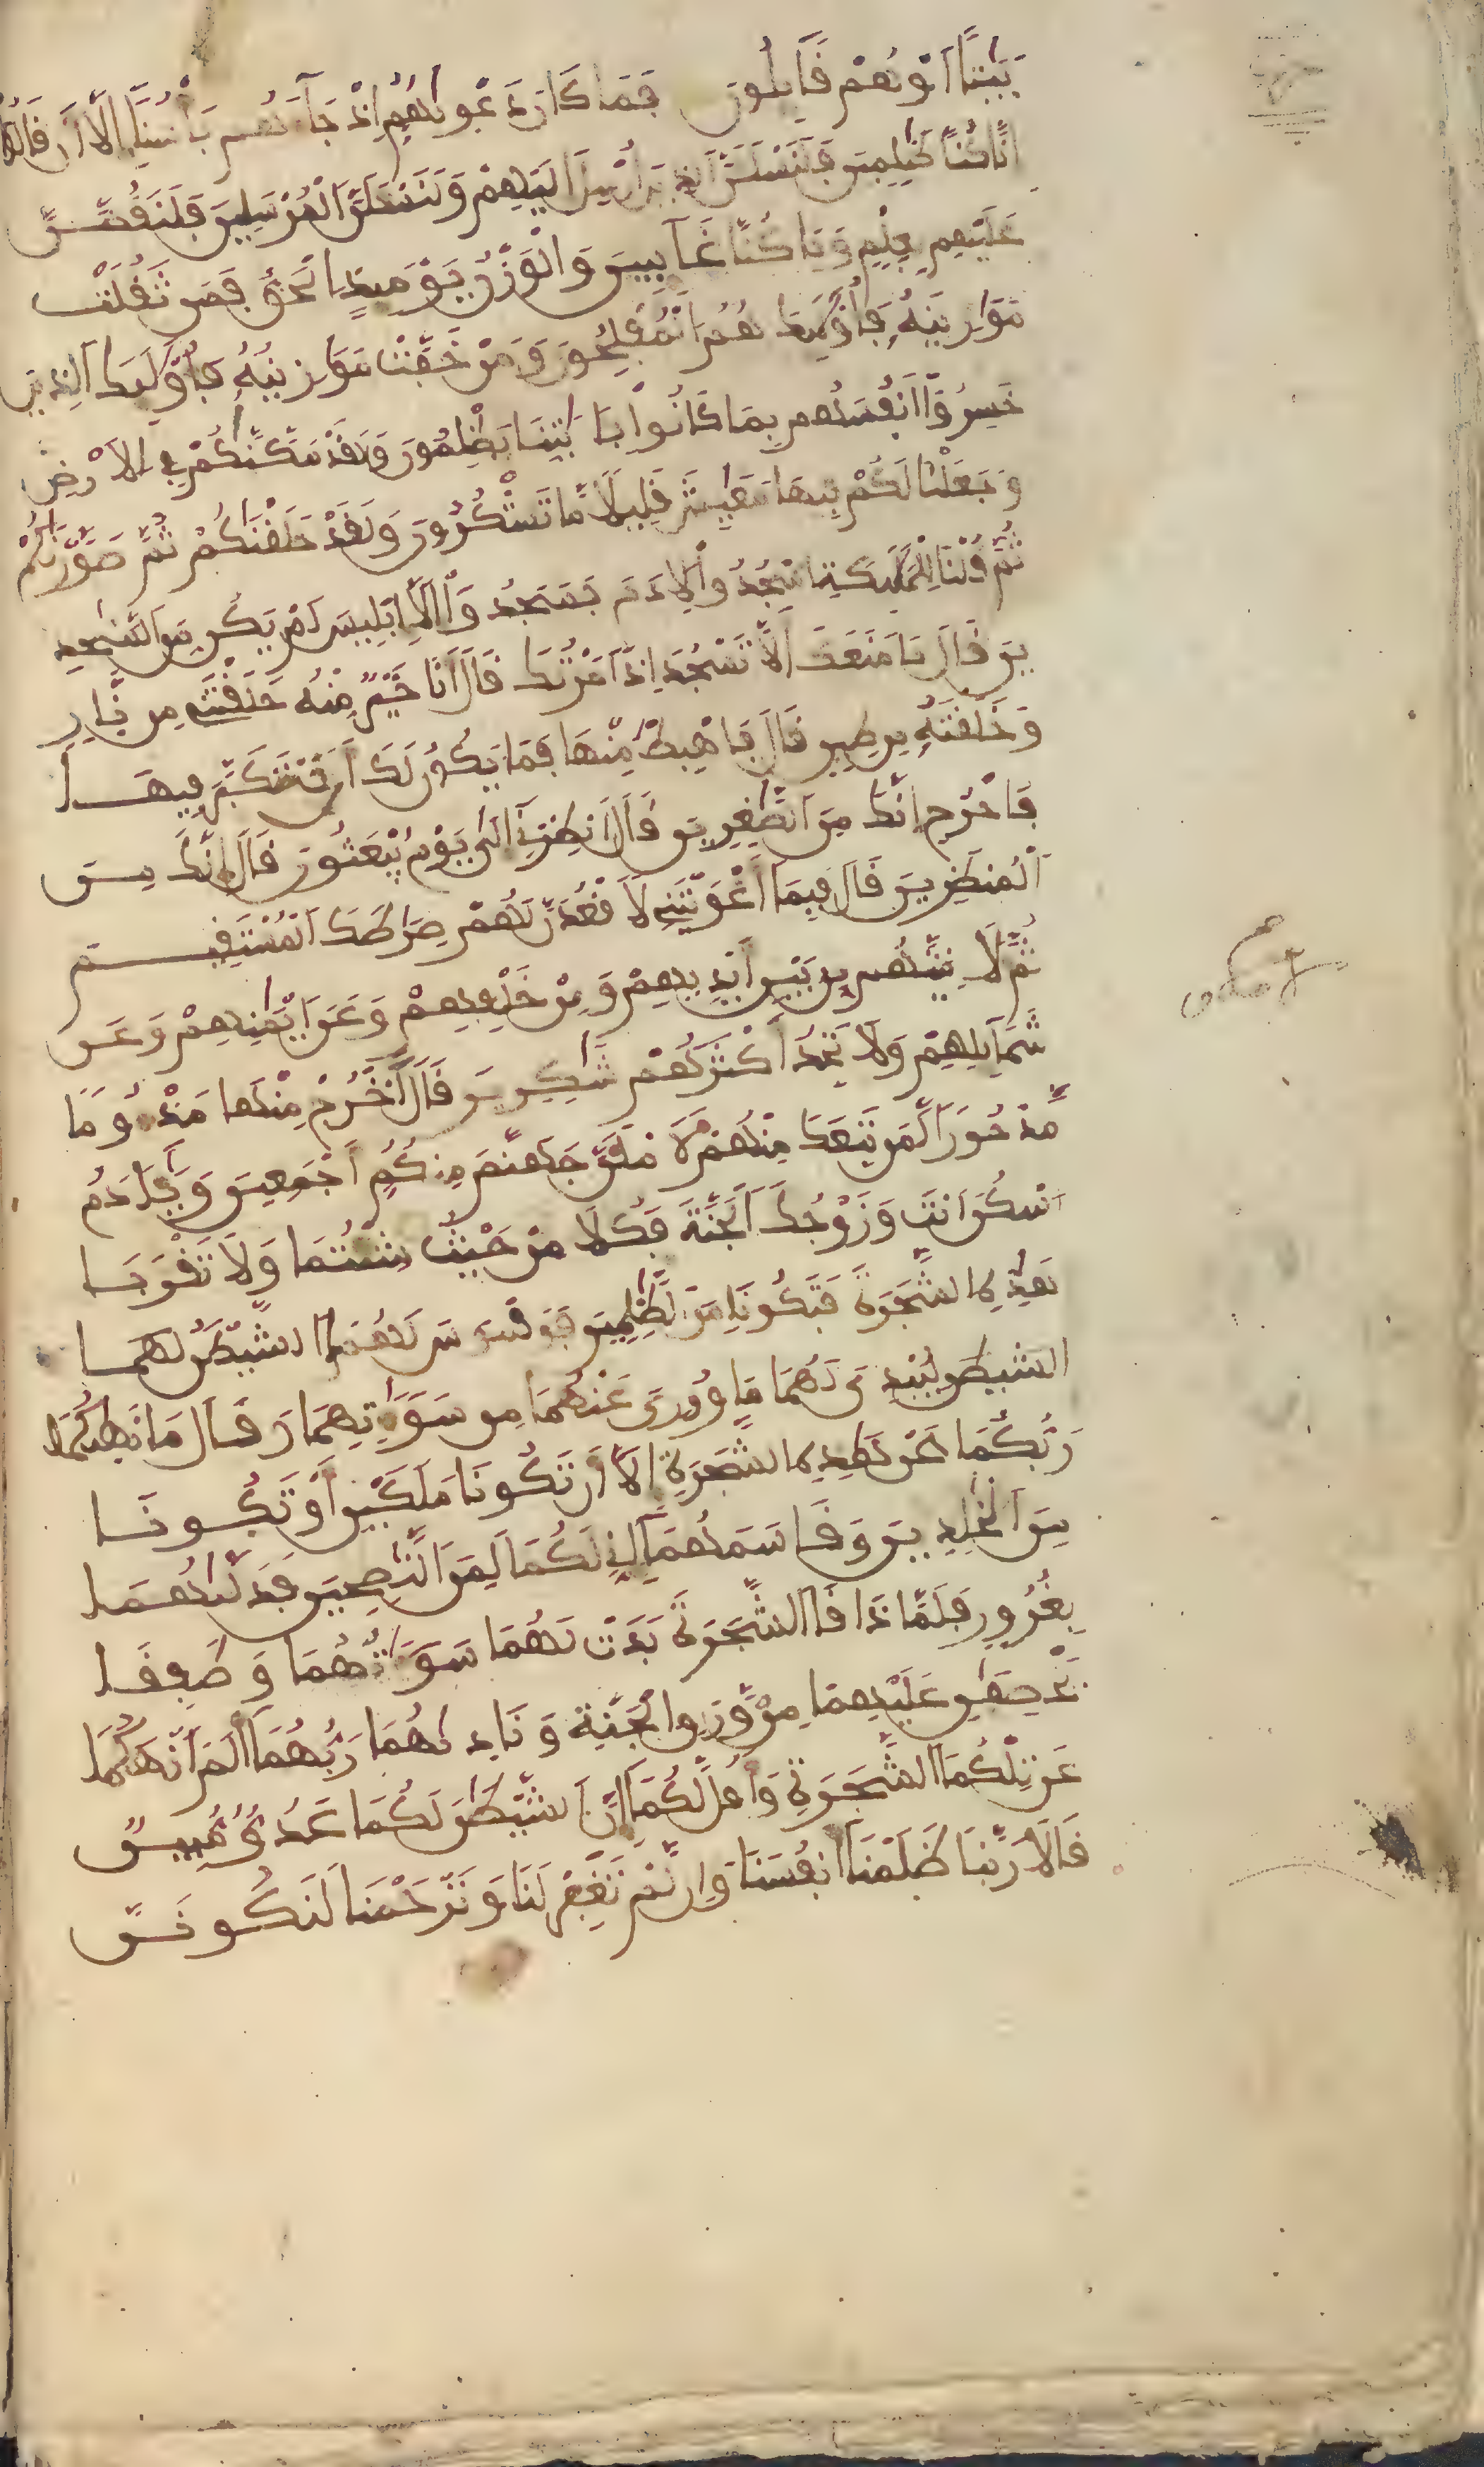 بيتا او هم قايلون فما كان دعويهم اذ جآءهم باسنآ الآ ان قالوا
انا كنا ظلمين فلنسلن الذين ارسل اليهم ولنسلن المرسلين فلنقصن
عليهم بعلم وما كنا غآيبين والوزن يوميذ الحق فمن ثقلت
موازينه فأوليك هم المفلحون ومن خفت موازينه فأوليك الذين
خسروا انفسهم بما كانوا بايتنا يظلمون ولقد مكنكم في الارض
وجعلنا لكم فيها معيش قليلا ما تشكرون ولقد خلقنكم ثم صورنكم
ثم قلنا للمليكة اسجدوا لادم فسجدوا الا ابليس لم يكن من السجد
ين قال ما منعك الا تسجد اذ امرتك قال انا خير منه خلقتني من نار
وخلقته من طين قال فاهبط منها فما يكون لك ان تتكبر فيها
فاخرج انك من الصغرين قال انظرني الى يوم يبعثون قال انك من
المنظرين قال فبما اغويتني لاقعدن لهم صراطك المستقيم
ثم لاتينهم من بين ايديهم ومن خلفهم وعن ايمنهم وعن
شمآيلهم ولا تجد اكثرهم شكرين قال اخرج منها مذءوما
مدحورا لمن تبعك منهم لاملئن جهنم منكم اجمعين ويادم
اسكن انت وزوجك الجنة فكلا من حيث شئتما ولا تقربا
هذه الشجرة فتكونا من الظلمين فوسوس لهما الشيطن لهما
الشيطن ليبدي لهما ما وري عنهما من سوءتهما وقال ما نهيكما
ربكما عن هذه الشجرة الآ ان تكونا ملكين او تكونا
من الخلدين وقاسمهمآ اني لكما لمن النصحين فدليهما
بغرور فلما ذاقا الشجرة بدت لهما سوءتهما وطفقا
يخصفن عليهما من ورق الجنة وناديهما ربهمآ الم انهكما
عن تلكما الشجرة واقل لكمآ ان الشيطن لكما عدو مبين
قالا ربنا ظلمنآ انفسنا وان لم تغفر لنا وترحمنا لنكونن